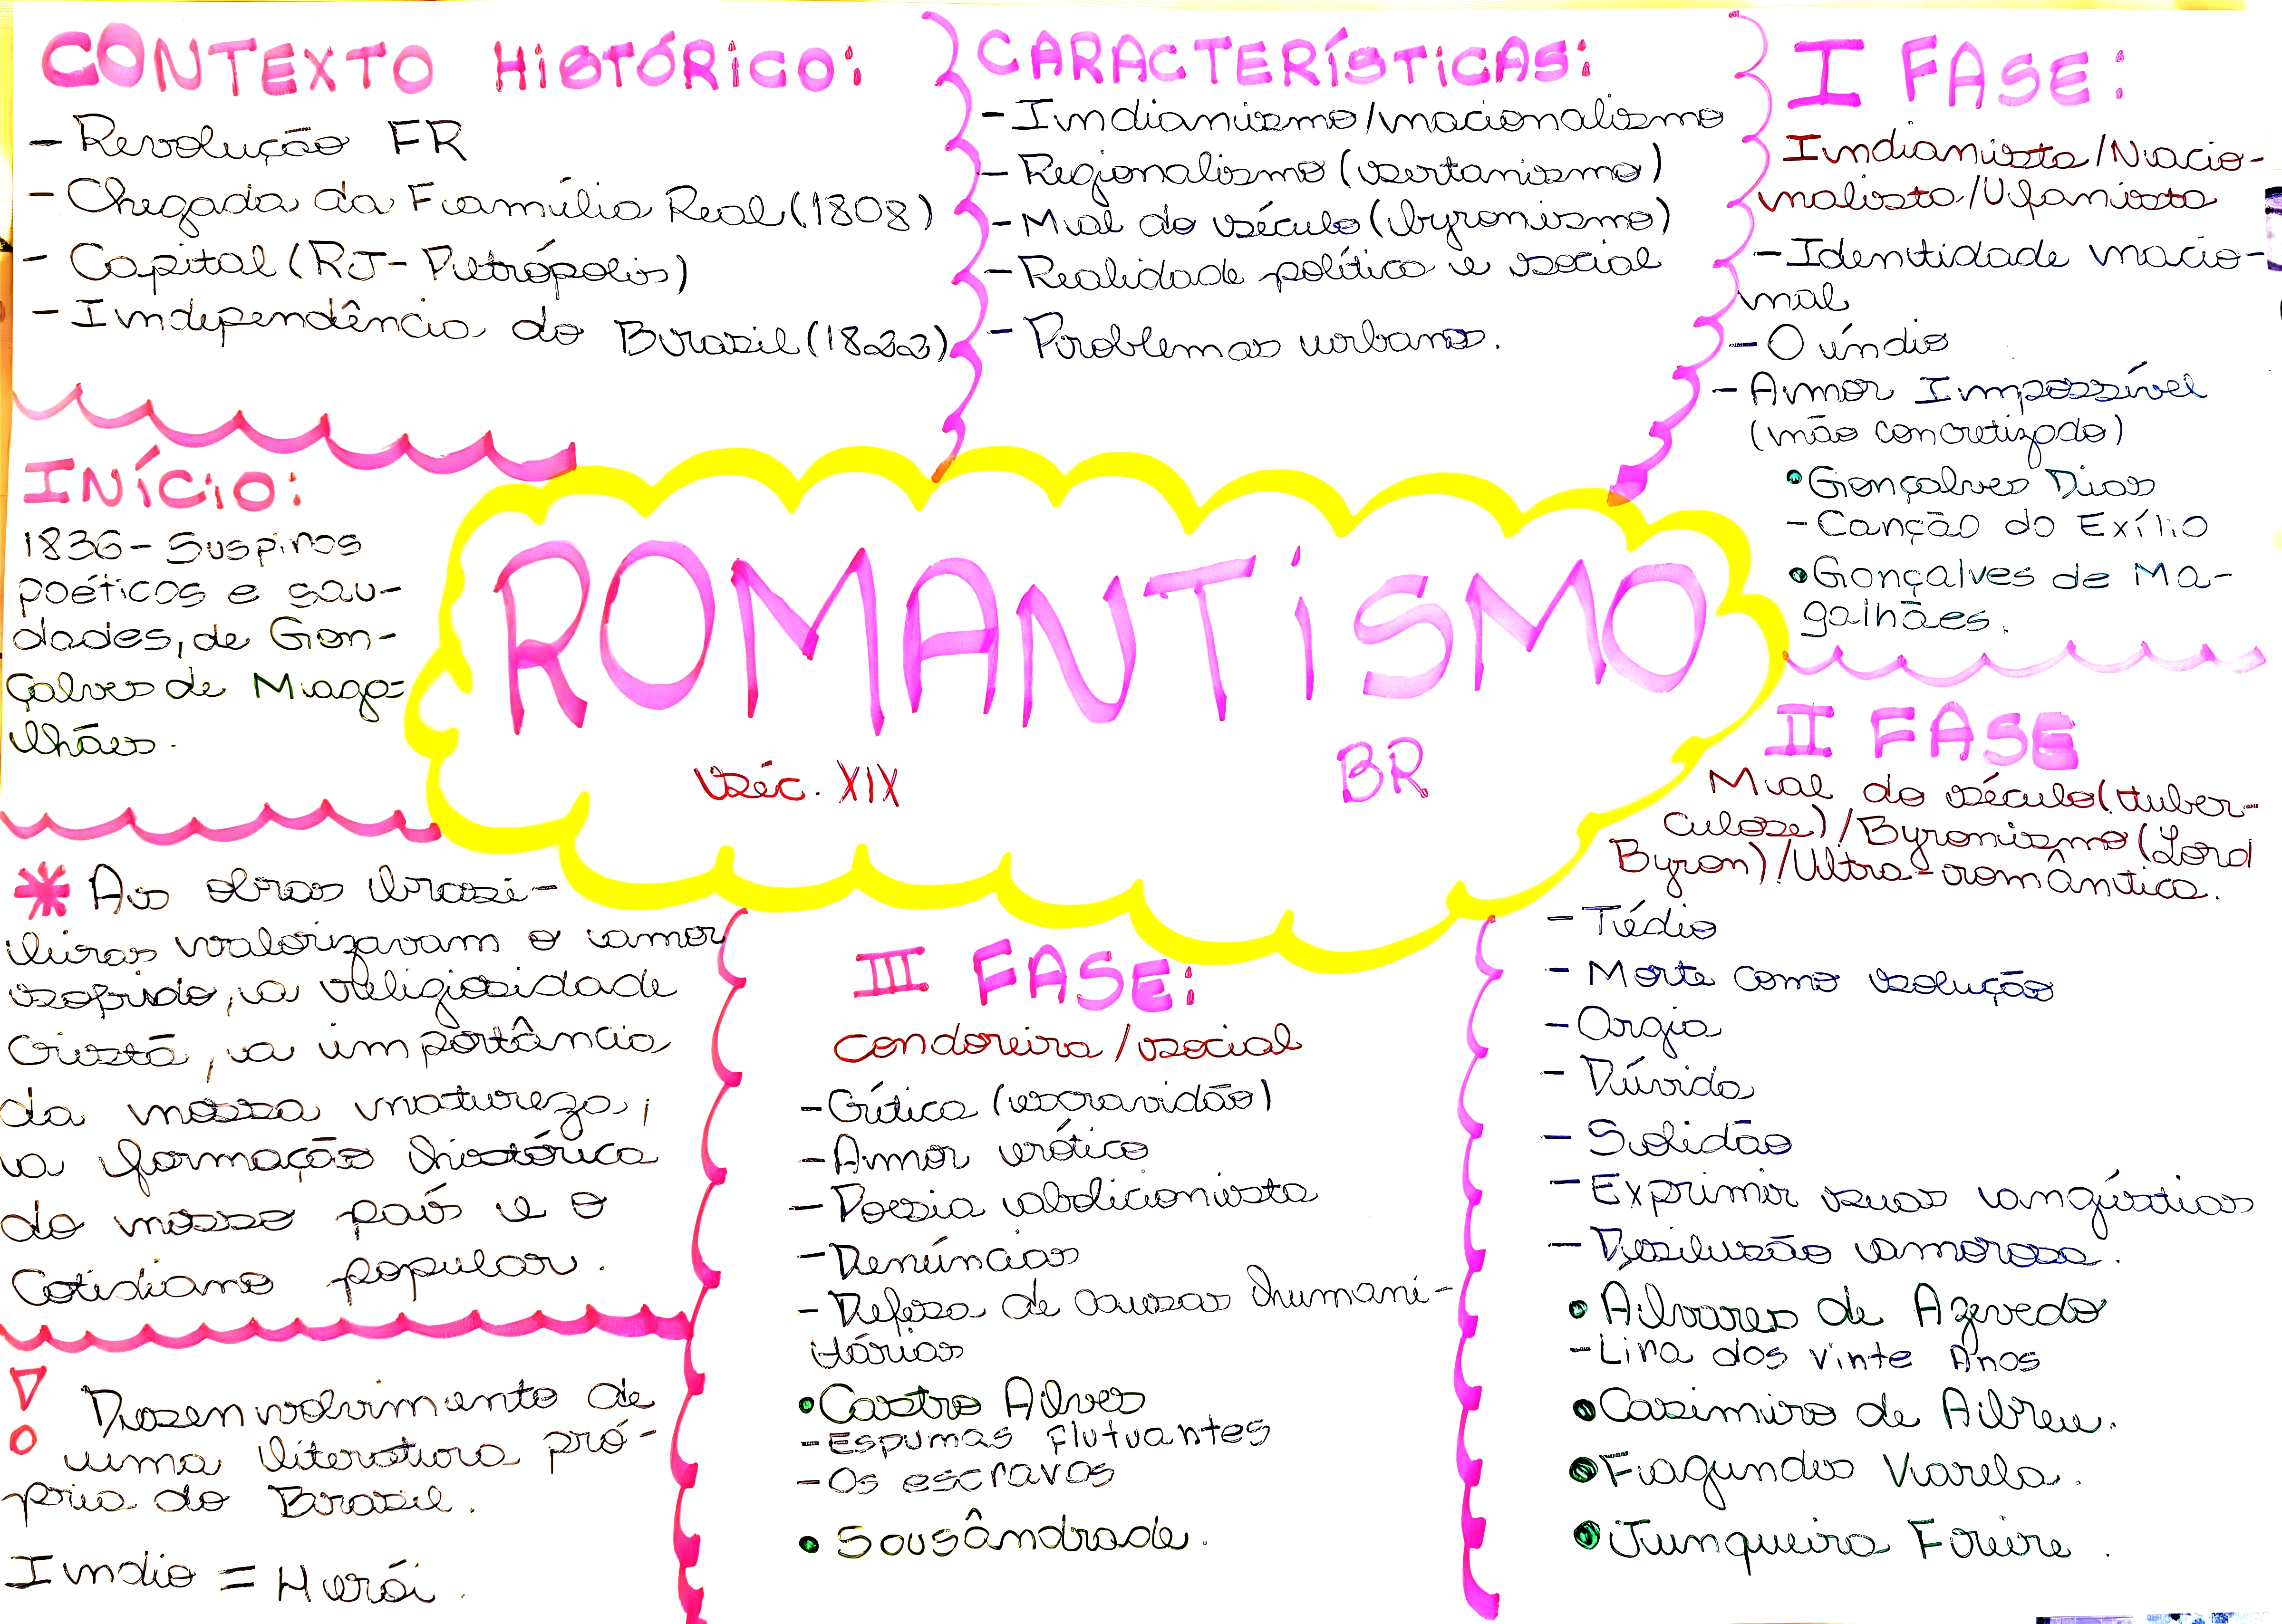 CONTEXTO HISTÓRICO:
- Revolução FR
- Chegada da Família Real (1808)
- Capital (RJ - Petrópolis)
- Independência do Brasil (1822)
CARACTERÍSTICAS:
- Indianismo/nacionalismo
- Regionalismo (sertanismo)
- Mal do século (byronismo)
- Realidade política e social
- Problemas urbanos.
I FASE:
Indianista/Nacio-
nalista/Ufanista
- Identidade nacio-
nal
- O índio
- Amor Impossível
(não concretizado)
• Gonçalves Dias
- Canção do Exílio
• Gonçalves de Ma-
galhães.
INÍCIO:
1836 - Suspiros
poéticos e sau-
dades, de Gon-
çalves de Maga-
lhães.
ROMANTISMO
Séc. XIX
BR
II FASE
Mal do século (tuber-
culose) / Byronismo (Lord
Byron) / Ultra-romântica.
- Tédio
- Morte como solução
- Orgia
- Dúvida
- Solidão
- Exprimir suas angústias
- Desilusão amorosa.
• Álvares de Azevedo
- Lira dos Vinte Anos
• Casimiro de Abreu.
• Fagundes Varela.
• Junqueira Freire.
* As obras brasi-
leiras valorizavam o amor
sofrido, a religiosidade
cristã, a importância
da nossa natureza,
a formação histórica
do nosso país e o
cotidiano popular.
III FASE:
Condoreira / social
- Crítica (escravidão)
- Amor erótico
- Poesia abolicionista
- Denúncias
- Defesa de causas humani-
tárias
• Castro Alves
- Espumas flutuantes
- Os escravos
• Sousândrade.
Desenvolvimento de
uma literatura pró-
pria do Brasil.
Indio = Herói.